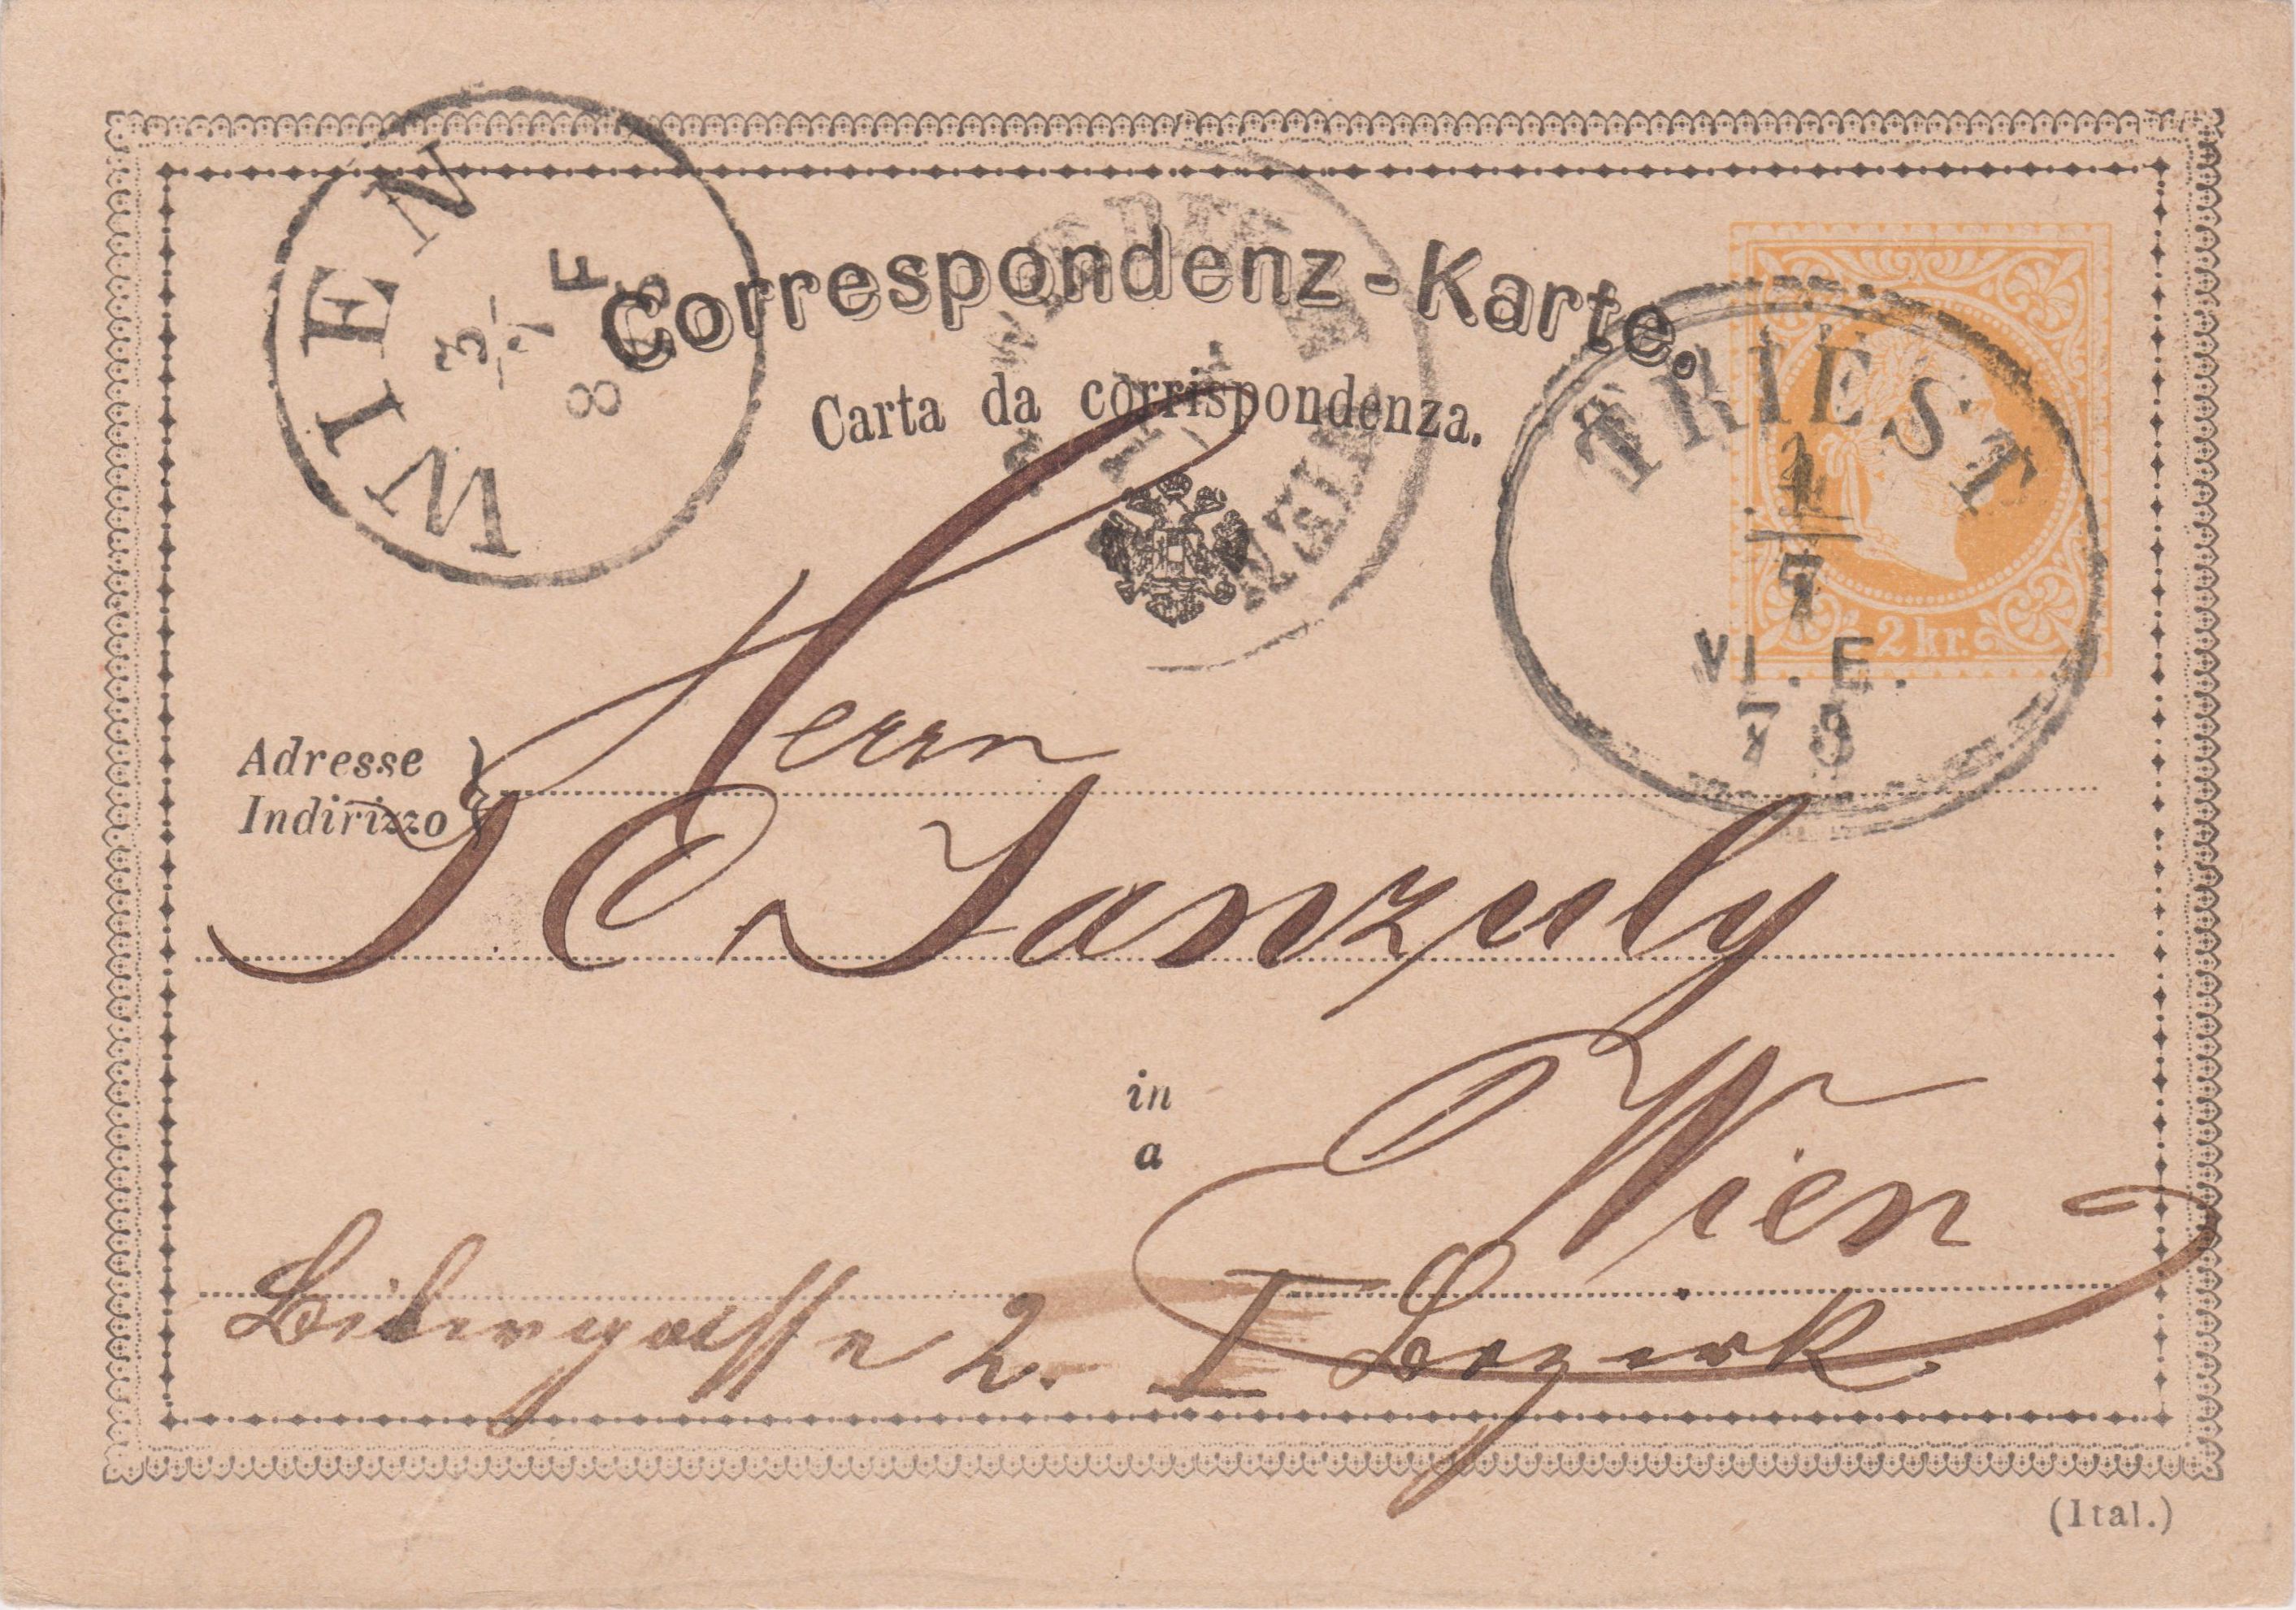 WIEN
3/7
8 F
Correspondenz-Karte.
Carta da corrispondenza.
WIEN
TRIEST
1/7
VI. E.
73
2 kr.
Adresse
Indirizzo
Herrn
J E Janzuly
in
a
Wien
Bibergasse 2. I Bezirk.
(Ital.)